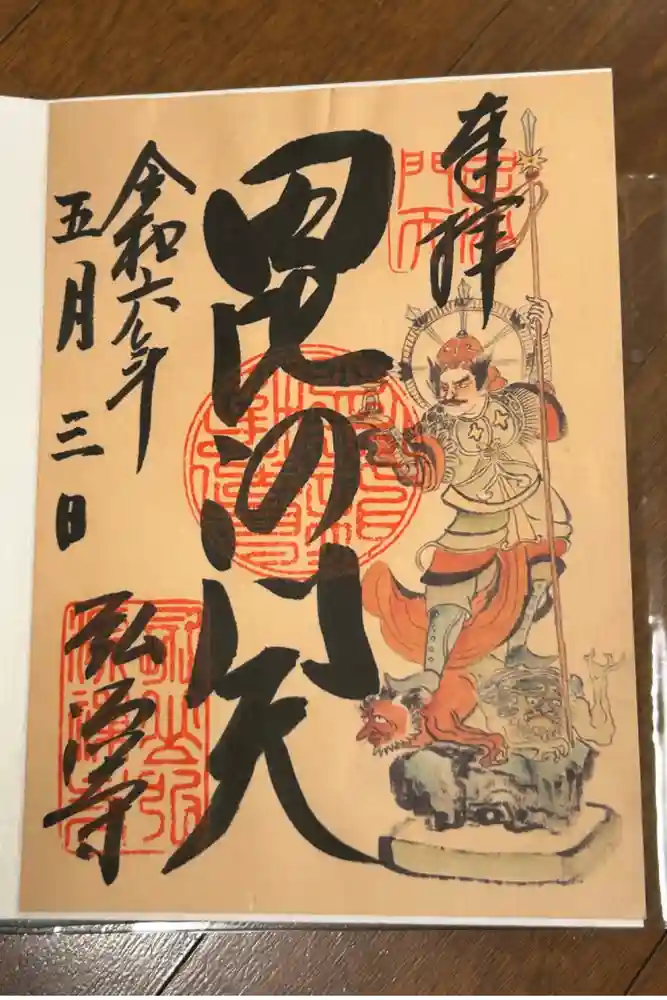 奉拝
毘沙門天
令和六年
五月三日
弘源寺